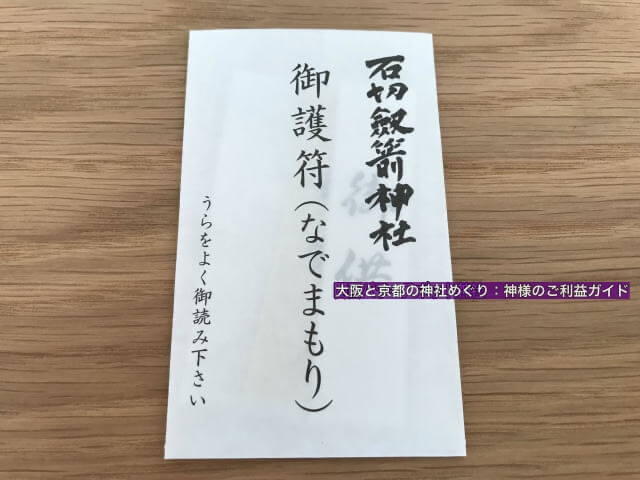 石切劔箭神社
御護符(なでまもり)
うらをよく御読み下さい
大阪と京都の神社めぐり：神様のご利益ガイド